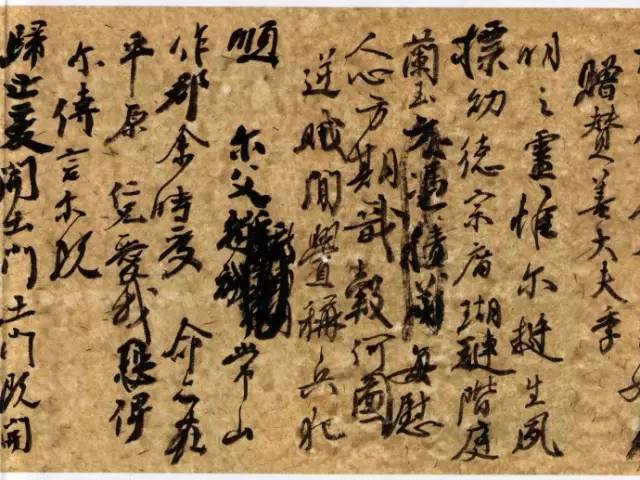 贈贊善大夫季
明之靈惟尔挺生夙
標幼德宗廟瑚璉階庭
蘭玉每慰
人心方期戩穀何圖
逆賊間釁稱兵犯
順 尔父 常山
作郡余時受 命亦在
平原 仁兄愛我 俾
尔傳言尔既
歸止爰開土門土門既開